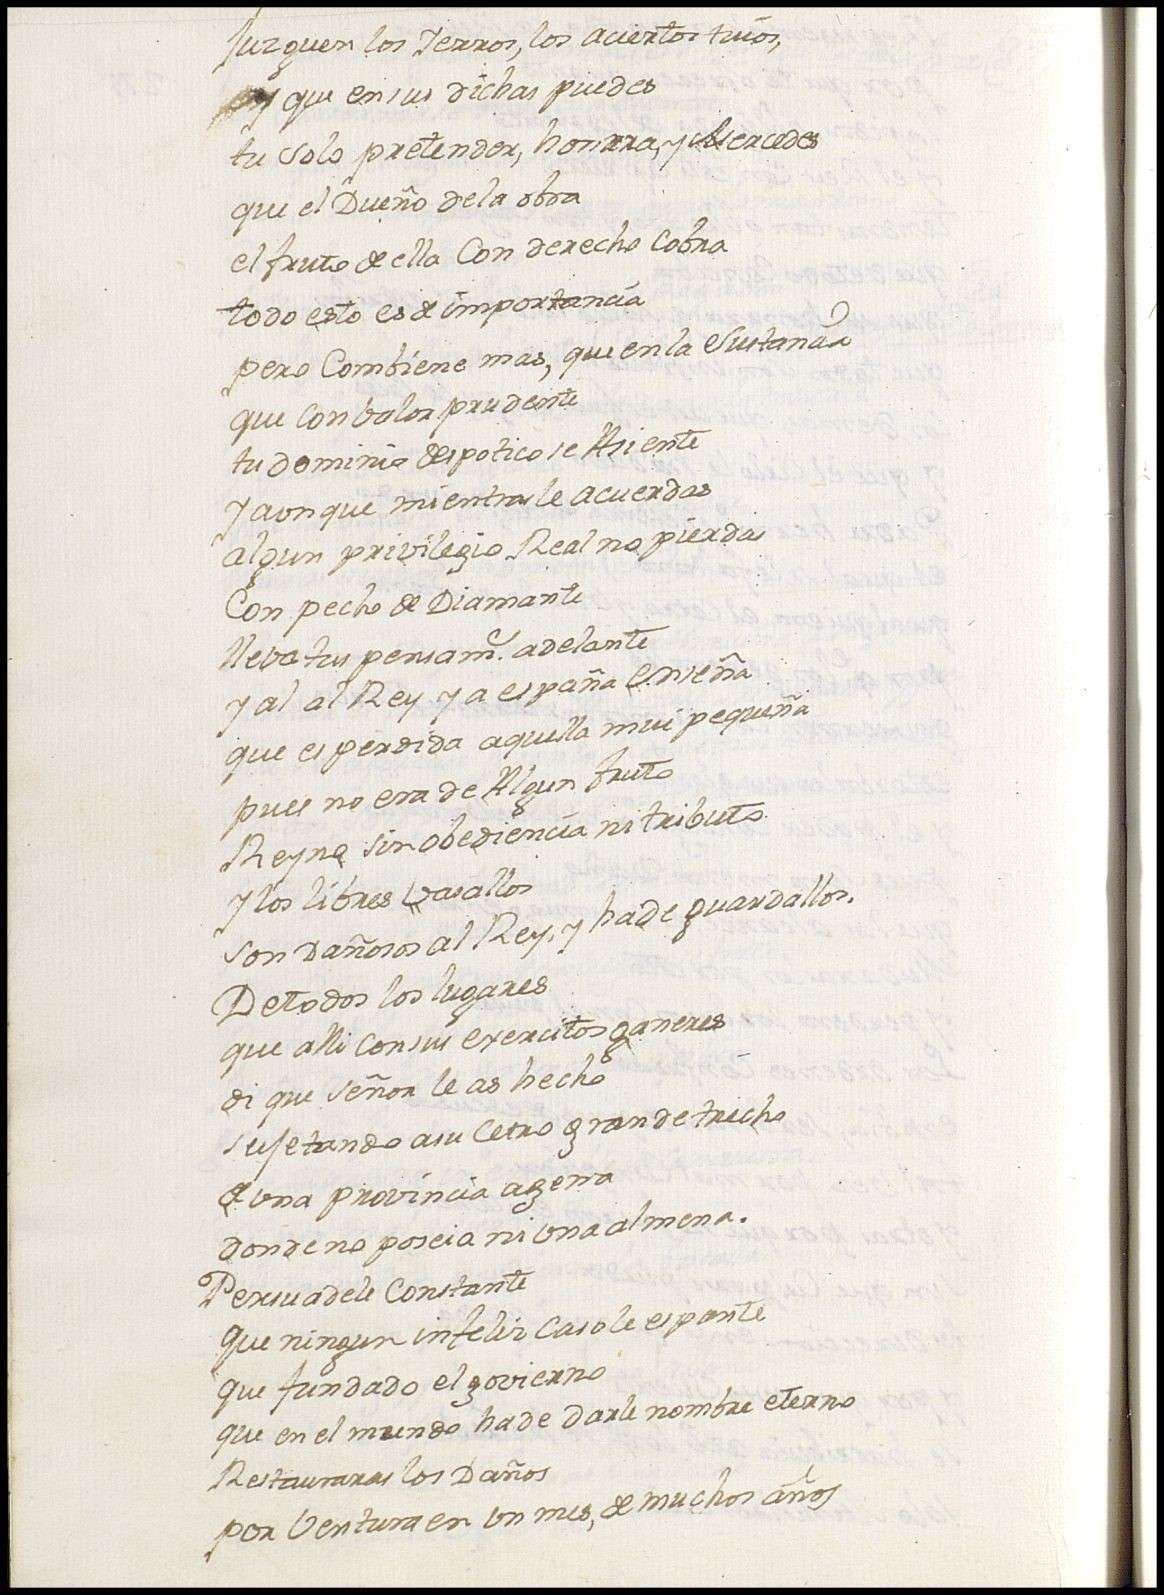 Juzguen los Yerros, los aciertos tuios,
y que en sus dichas puedes
tu solo pretender, honrra, y Mercedes
que el Dueño dela obra
el fruto de ella Con derecho Cobra
todo esto es de importancia
pero Combiene mas, que en la Sustancia
que con balor prudente
tu dominio despotico se Asiente
y aunque mientras le acuerdas
algun privilegio Real no pierdas
Con pecho de Diamante
lleva tus pensamt. adelante
y al al Rey y a españa enseña
que es perdida aquella mui pequeña
pues no era de Algun fruto
Reyno sin obediencia ni tributo
y los libres vasallos
son Dañosos al Rey, y hade guardallos.
De todos los lugares
que alli con sus exercitos ganeres
di que señor le as hecho
sujetando a su Cetro grande trecho
de una provincia agena
donde no poseia ni una almena.
Persuadele Constante
que ningun infeliz caso le espante
que fundado el govierno
que en el mundo hade darle nombre eterno
Restauraras los Daños
por Ventura en un mes, de muchos años